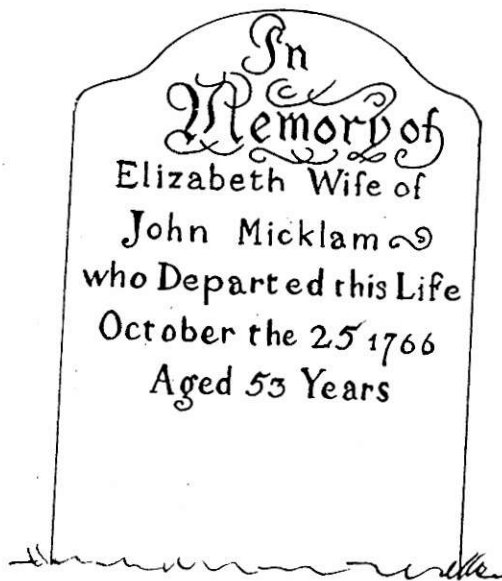 In
Memory of
Elizabeth Wife of
John Micklam
who Departed this Life
October the 25 1766
Aged 53 Years